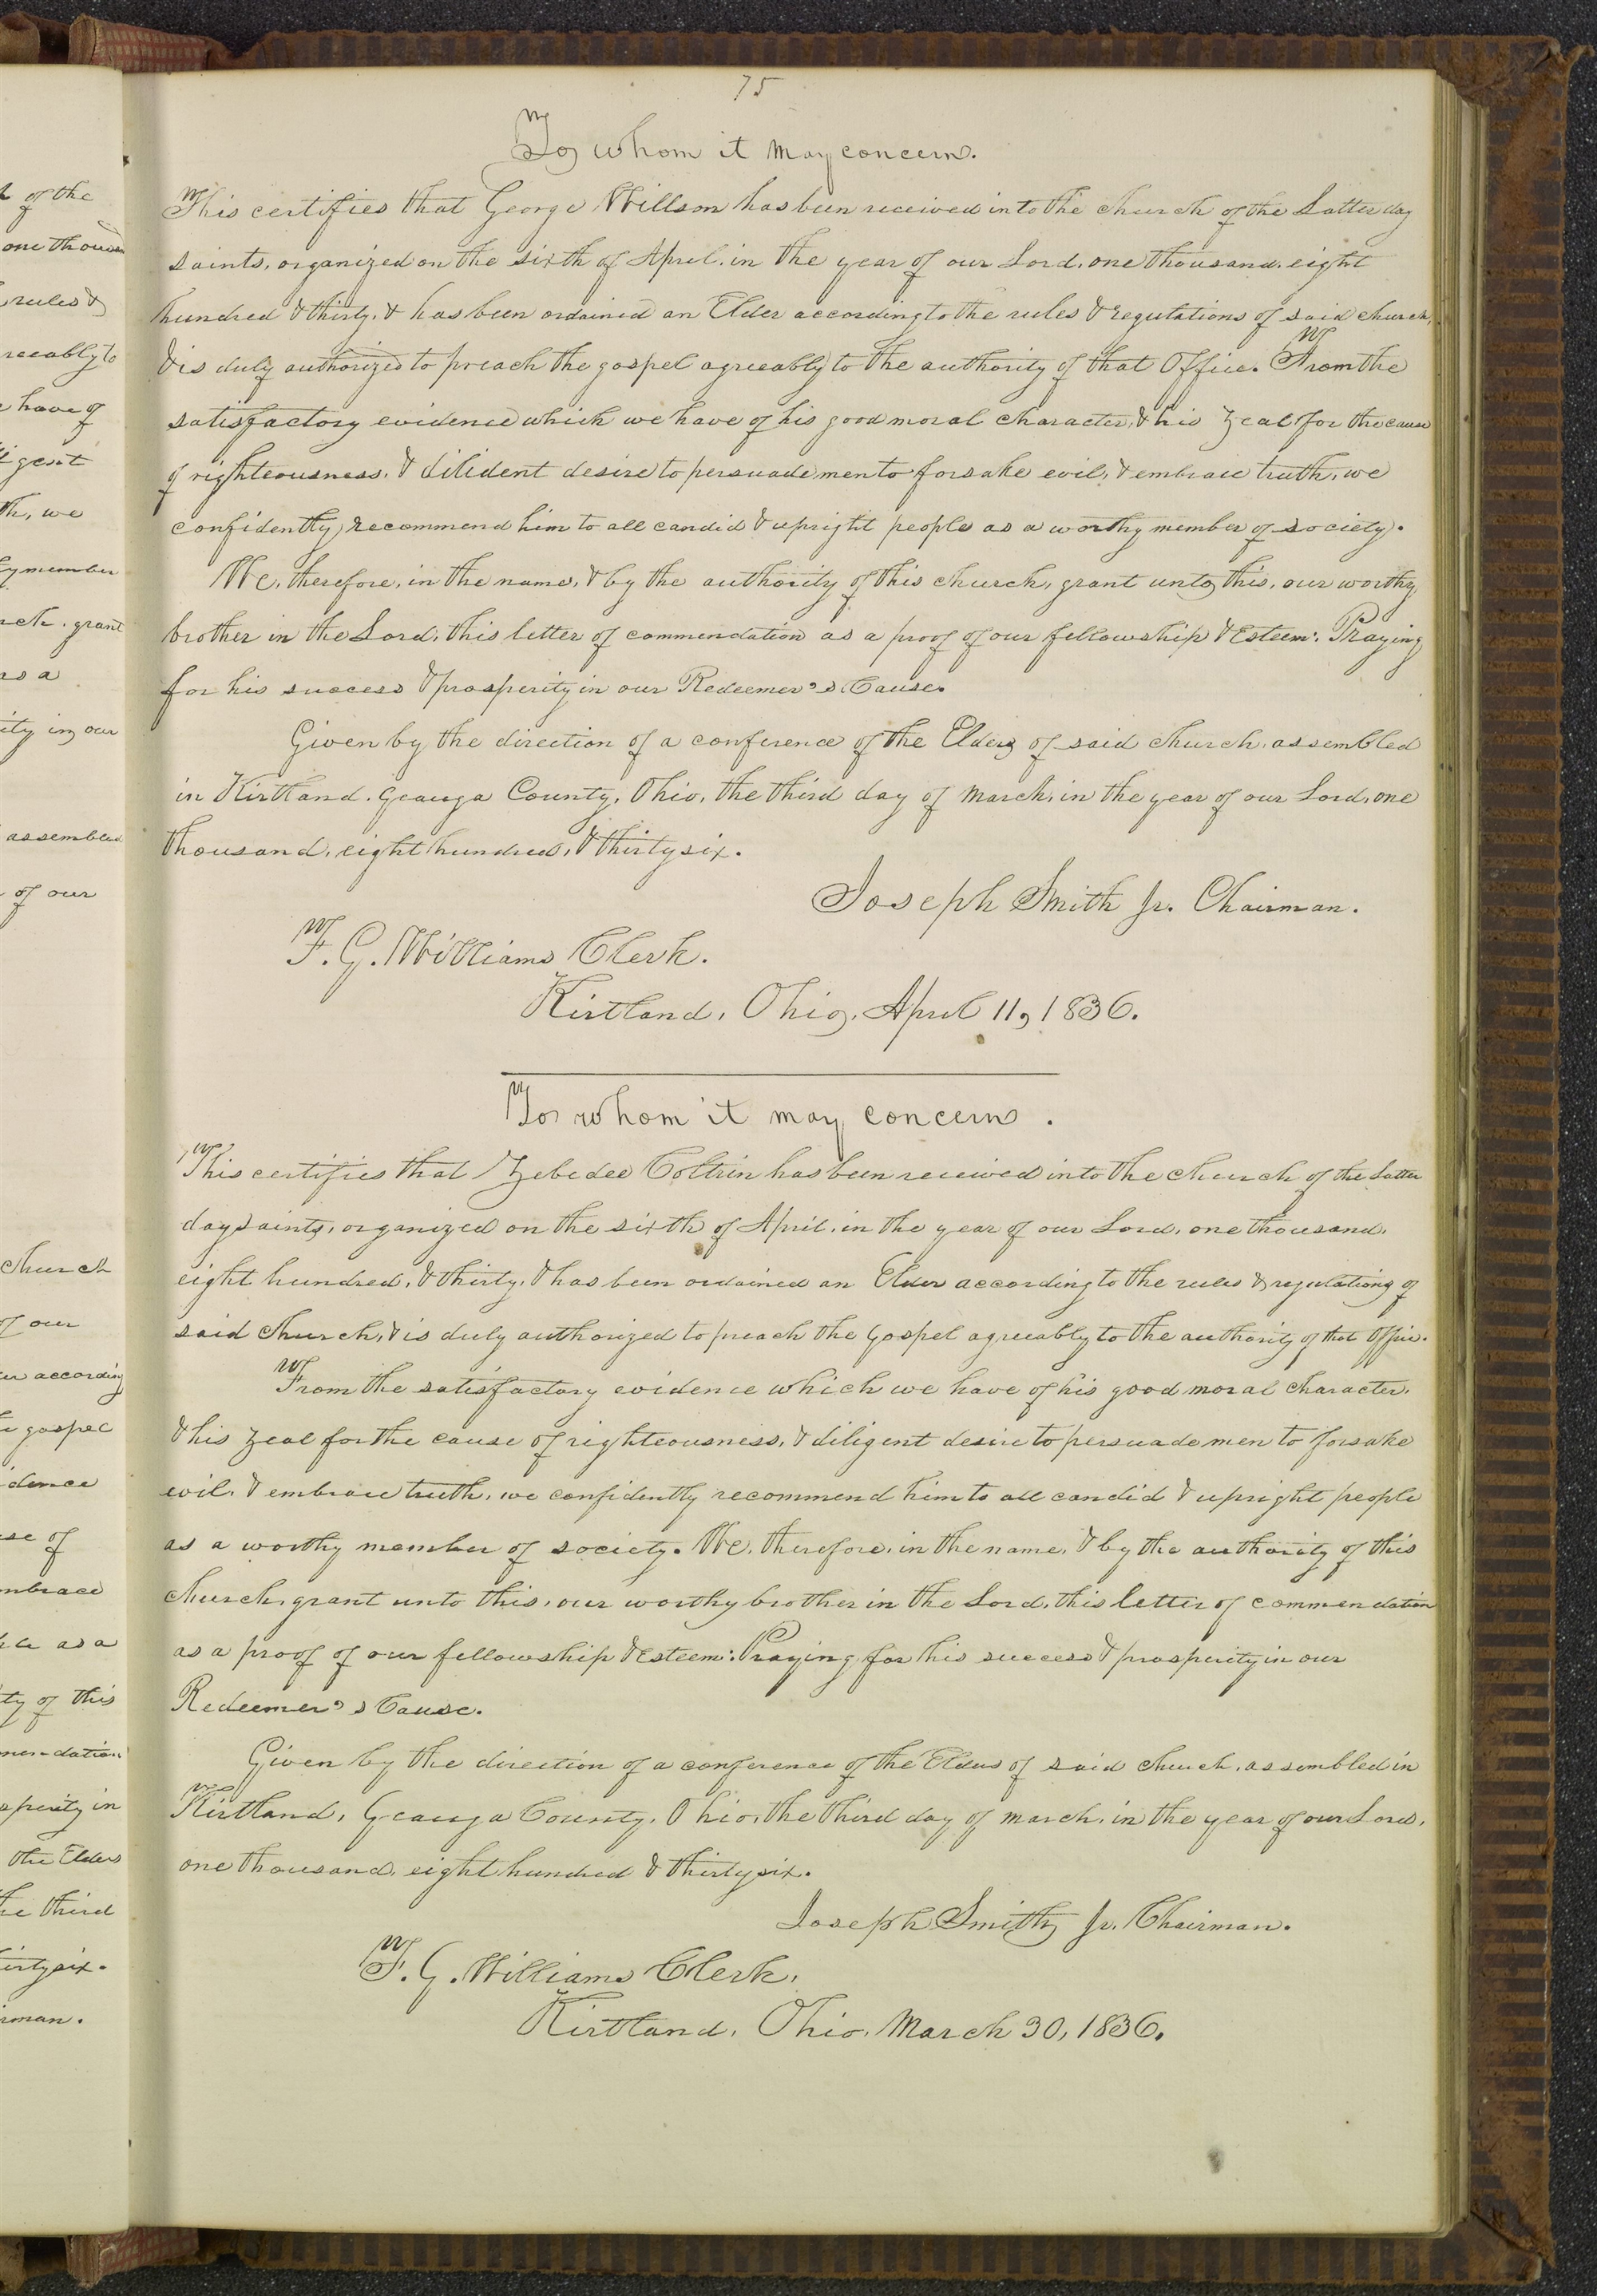 75
To whom it may concern.
This certifies that George Willson has been received into the church of the Latter day
saints, organized on the sixth of April, in the year of our Lord, one thousand, eight
hundred & thirty, & has been ordained an Elder according to the rules & regulations of said church,
& is duly authorized to preach the gospel agreeably to the authority of that Office. From the
satisfactory evidence which we have of his good moral character, & his zeal for the cause
of righteousness, & dilident desire to persuade men to forsake evil, & embrace truth, we
confidently recommend him to all candid & upright people as a worthy member of society.
We, therefore, in the name, & by the authority of this church, grant unto this, our worthy
brother in the Lord, this letter of commendation as a proof of our fellowship & Esteem: Praying
for his success & prosperity in our Redeemer's Cause.
Given by the direction of a conference of the Elders of said church, assembled
in Kirtland, Geauga County, Ohio, the third day of March, in the year of our Lord, one
thousand, eight hundred, & thirty six.
Joseph Smith Jr. Chairman.
F. G. Williams Clerk.
Kirtland, Ohio, April 11, 1836.
To whom it may concern.
This certifies that Zebedee Coltrin has been received into the church of the Latter
day saints, organized on the sixth of April, in the year of our Lord, one thousand,
eight hundred, & thirty, & has been ordained an Elder according to the rules & regulations of
said church, & is duly authorized to preach the Gospel agreeably to the authority of that Office.
From the satisfactory evidence which we have of his good moral character,
& his zeal for the cause of righteousness, & diligent desire to persuade men to forsake
evil, & embrace truth, we confidently recommend him to all candid & upright people
as a worthy member of society. We, therefore, in the name, & by the authority of this
church, grant unto this, our worthy brother in the Lord, this letter of commendation
as a proof of our fellowship & Esteem: Praying for his success & prosperity in our
Redeemer's Cause.
Given by the direction of a conference of the Elders of said church, assembled in
Kirtland, Geauga County, Ohio, the third day of march, in the year of our Lord,
one thousand, eight hundred & thirty six.
Joseph Smith Jr. Chairman.
F. G. Williams Clerk,
Kirtland, Ohio, March 30, 1836.